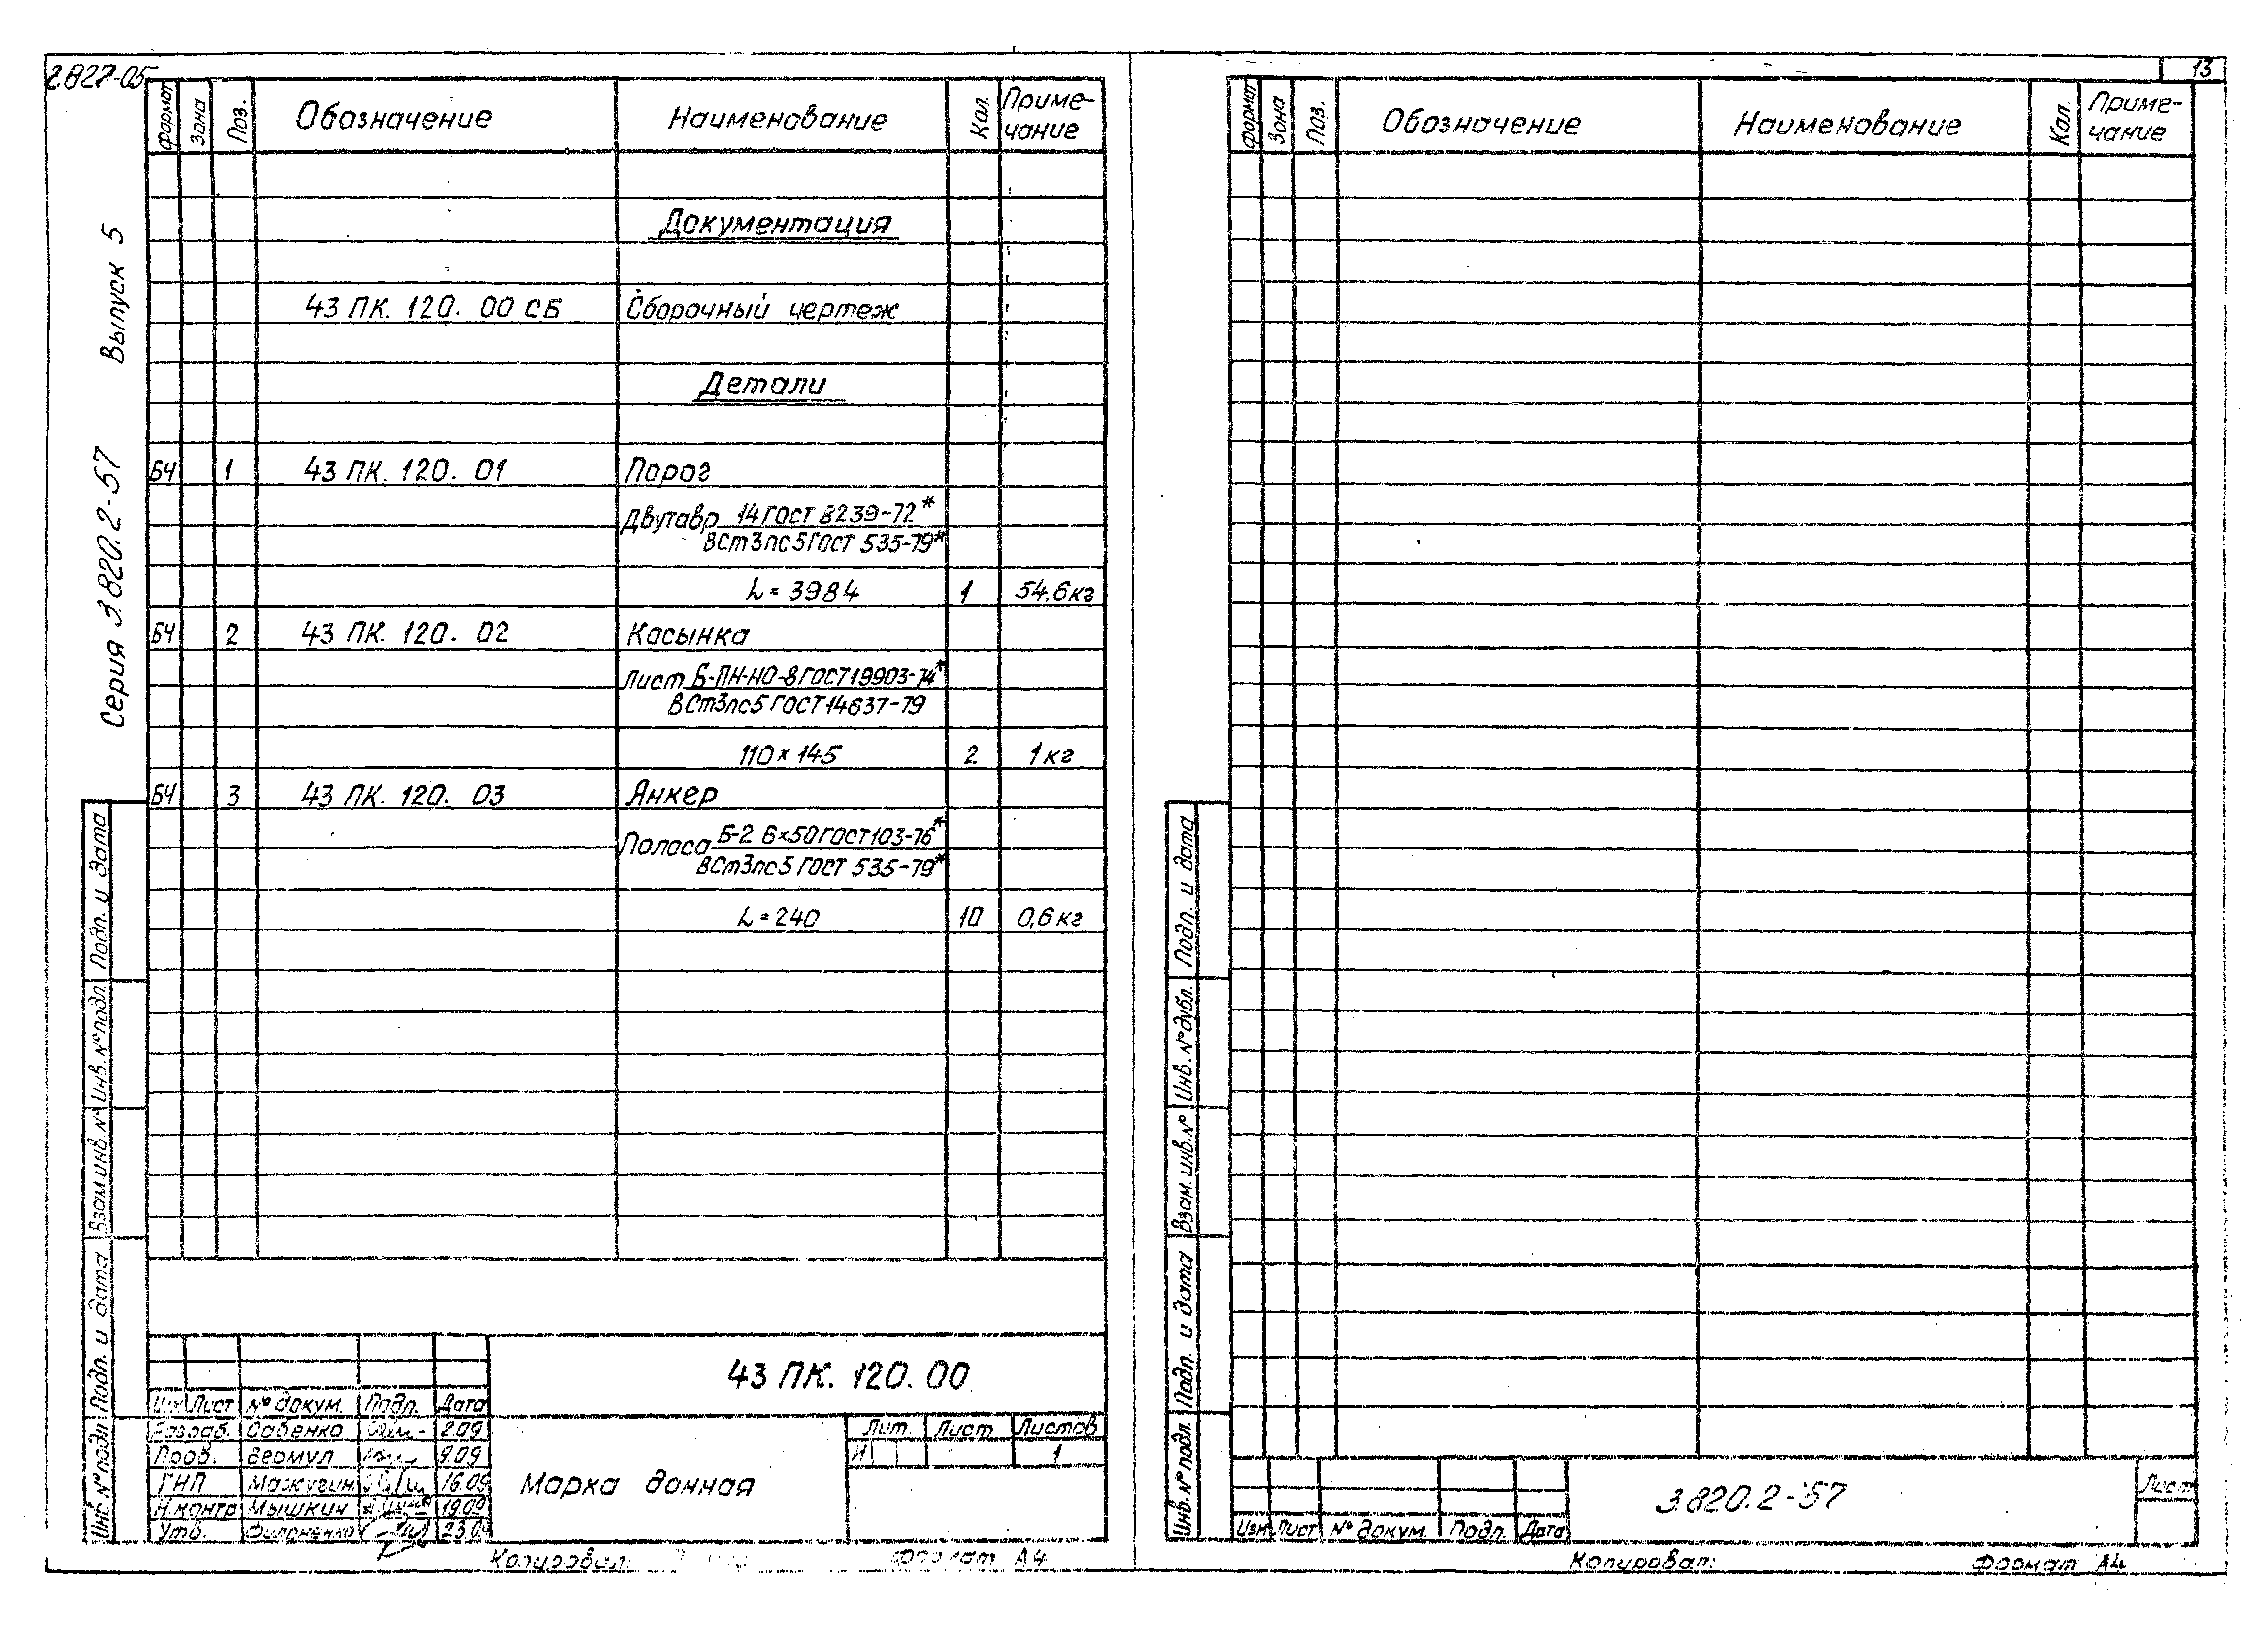 2.827-05
Серия 3.820.2-57 Выпуск 5
Формат Зона Поз. Обозначение Наименование Кол. Приме-
чание
Документация
43 ПК. 120. 00 СБ Сборочный чертеж
Детали
БЧ 1 43 ПК. 120. 01 Порог
Двутавр 14 ГОСТ 8239-72*
ВСт3пс5 ГОСТ 535-79*
L = 3984 1 54.6кг
БЧ 2 43 ПК. 120. 02 Косынка
Лист Б-ПН-НО-8 ГОСТ 19903-74*
ВСт3пс5 ГОСТ 14637-79
110 × 145 2 1 кг
БЧ 3 43 ПК. 120. 03 Анкер
Полоса Б-2 6×50 ГОСТ 103-76*
ВСт3пс5 ГОСТ 535-79*
L = 240 10 0,6 кг
Подп. и дата
Инв. № подл.
Взам. инв. №
Подп. и дата
Инв. № подл
43 ПК. 120. 00
Изм Лист № докум. Подп. Дата
Разраб. Сабенко 2.09
Пров. Вермул 9.09
ГИП Мажугин 16.09
Н.контр Мышкин 19.09
Утв. Филоненко 23.09
Марка донная
Лит. Лист Листов
И 1
Копировал: Формат А4
13
Формат Зона Поз. Обозначение Наименование Кол. Приме-
чание
Подп. и дата
Инв. № дубл.
Взам. инв. №
Подп. и дата
Инв. № подл.
3.820.2-57
Лист
Изм Лист № докум. Подп. Дата
Копировал: Формат А4